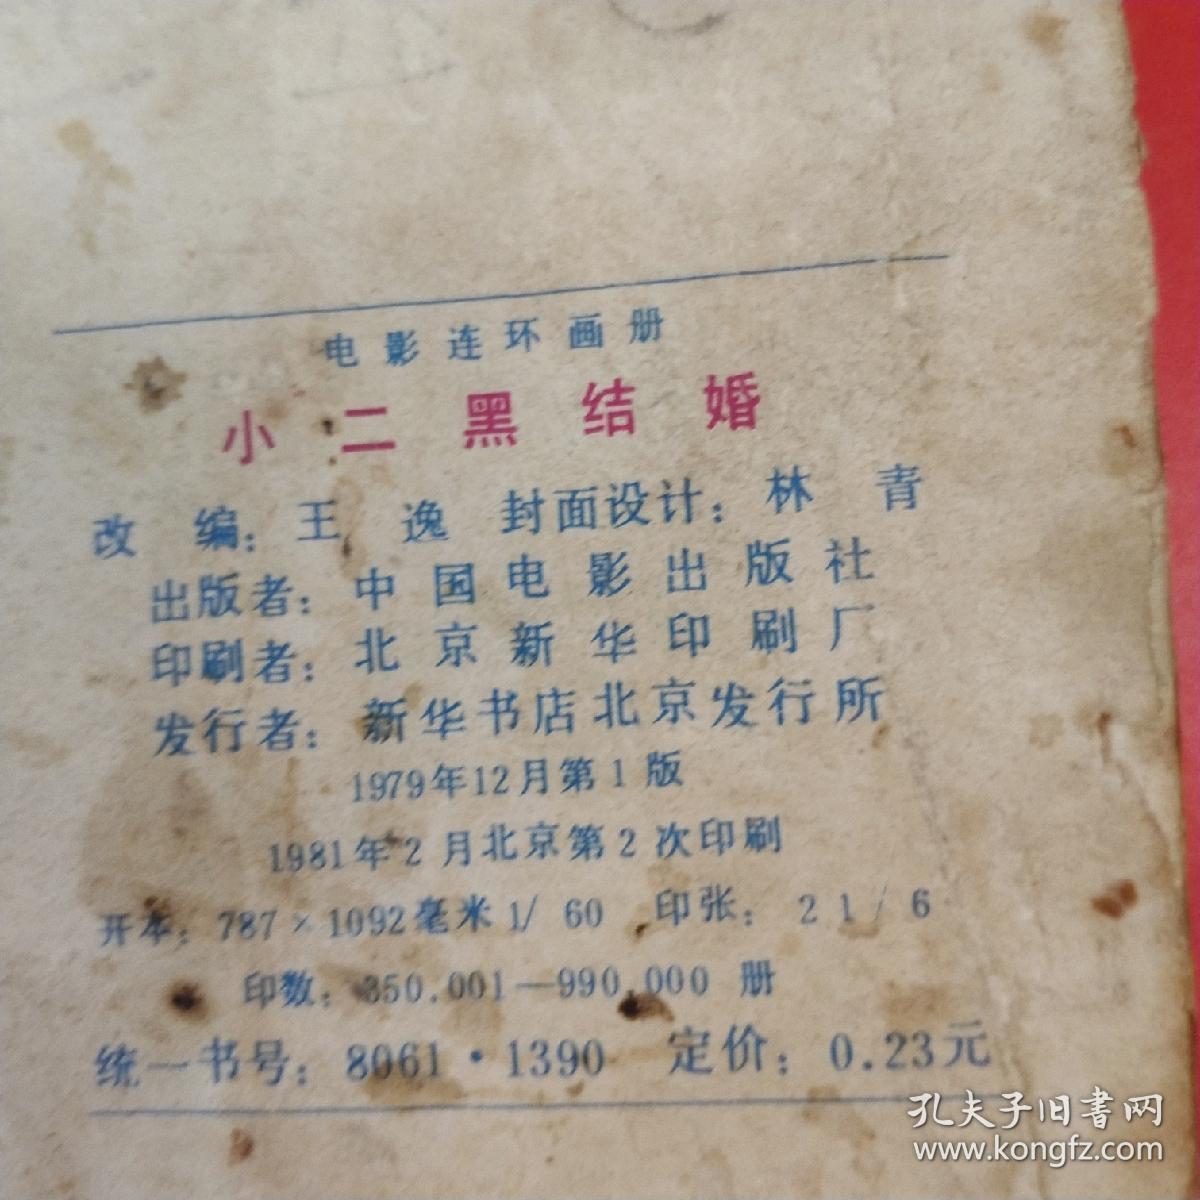 电影连环画册
小二黑结婚
改 编：王 逸 封面设计：林 青
出版者：中国电影出版社
印刷者：北京新华印刷厂
发行者：新华书店北京发行所
1979年12月第1版
1981年2月北京第2次印刷
开本：787×1092毫米1/60 印张：2 1/6
印数：350,001—990,000 册
统一书号：8061·1390 定价：0.23元
孔夫子旧书网
www.kongfz.com